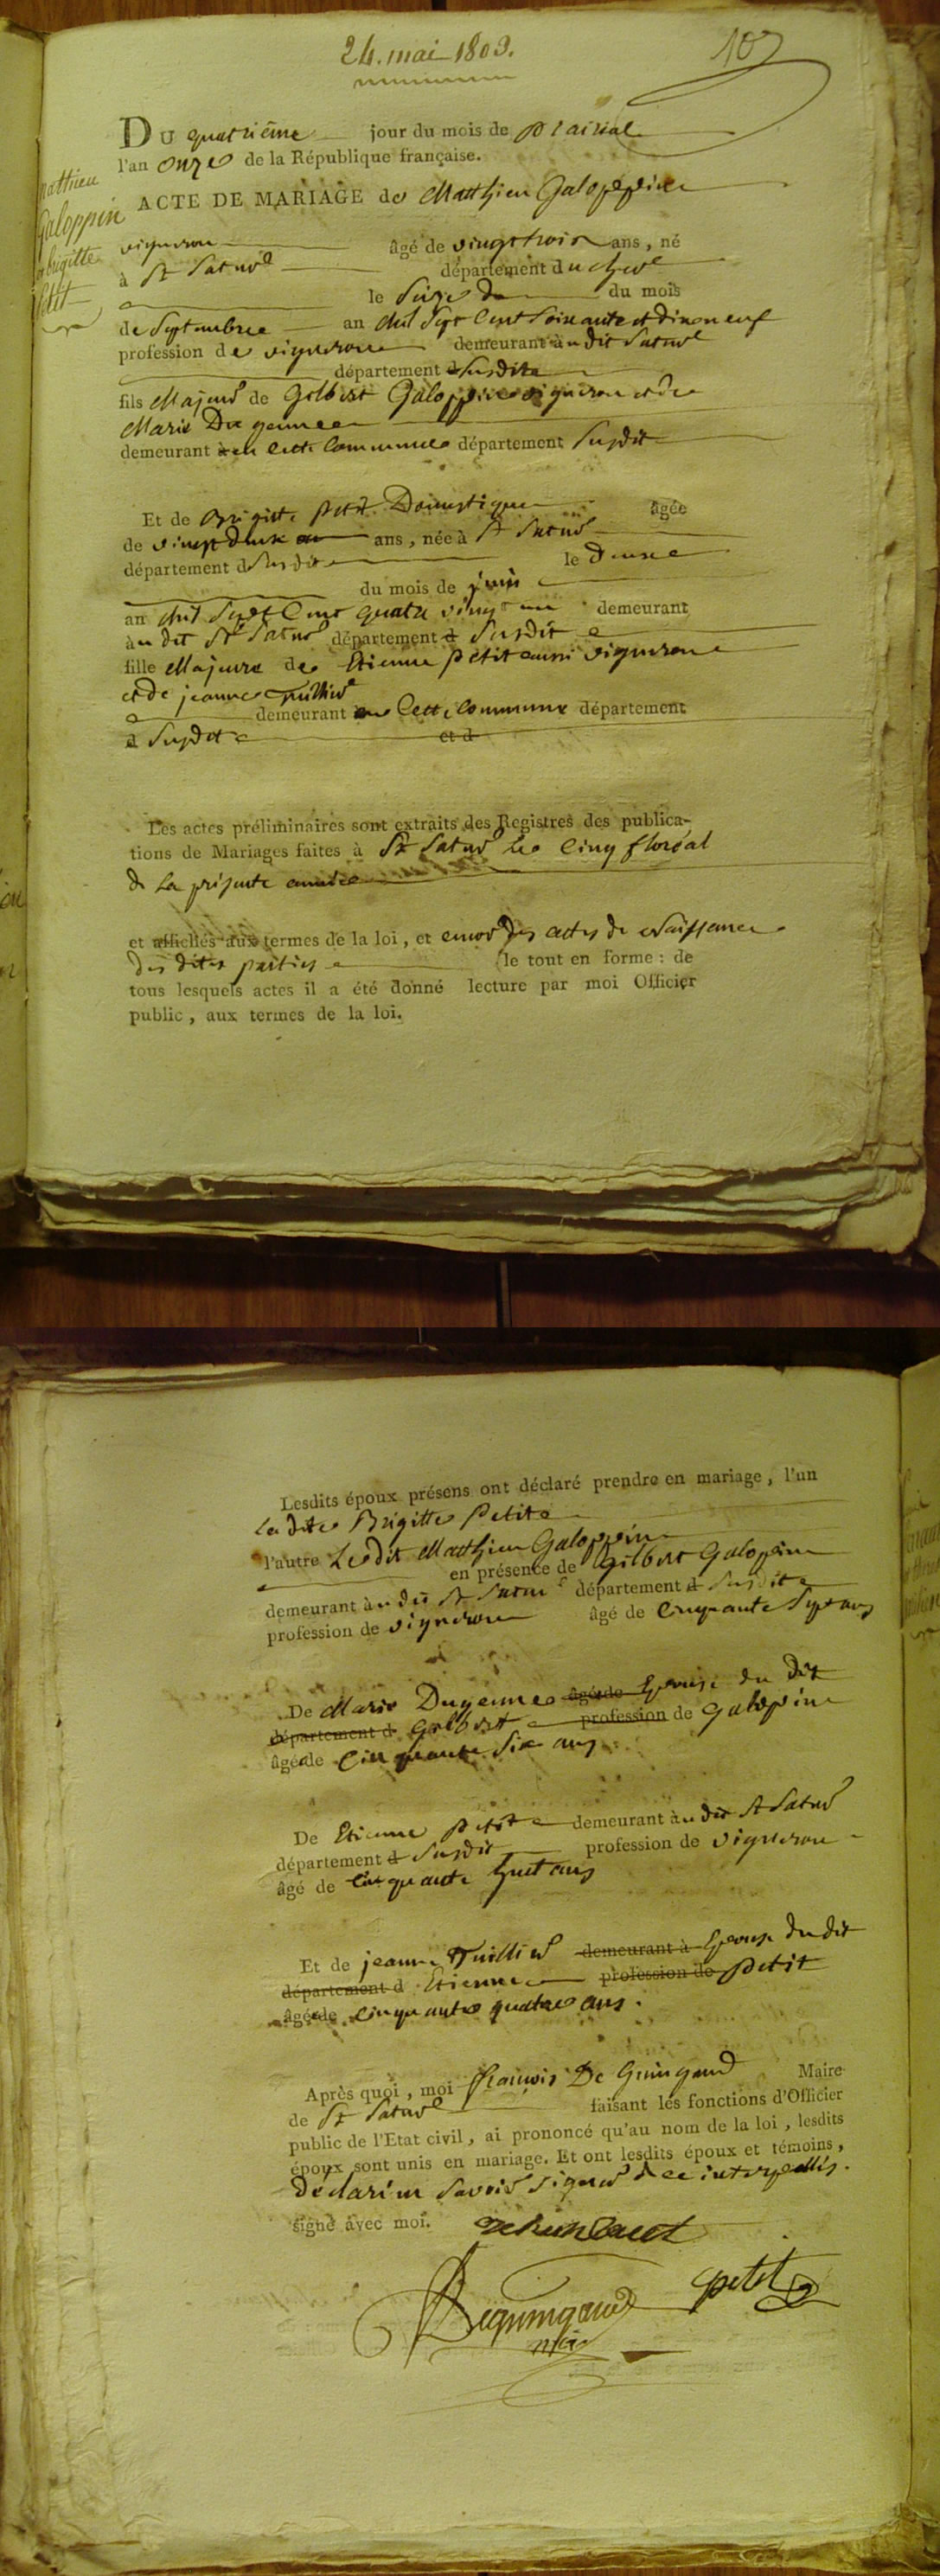 24. mai 1803.
107
DU quatrième jour du mois de prairial
l'an onze de la République française.
Matthieu
Galoppin
et brigitte
Petit
ACTE DE MARIAGE de Matthieu Galoppin
vigneron âgé de vingt trois ans, né
à St Saturer département du cher
le Seize de du mois
de Septembre an Mil Sept Cent Soixante et dix neuf
profession de vigneron demeurant au dit Saturer
département d Susdit
fils Majeur de Gilbert Galoppin vigneron et de
Marie Dugenne
demeurant à en cette Commune département Susdit
Et de Brigitte Petit Domestique âgée
de vingt deux ans, née à St Satur
département d Susdit le deux
du mois de juin
an Mil Sept Cent quatre vingt un demeurant
au dit St Satur département d Susdit
fille Majeure de Etienne Petit aussi vigneron
et de jeanne Thuillier
demeurant en Cette Commune département
d Susdit et d
Les actes préliminaires sont extraits des Registres des publica-
tions de Mariages faites à St Satur le Cinq floréal
de la présente année
et affichés aux termes de la loi, et encor des actes de Naissance
des dites parties le tout en forme : de
tous lesquels actes il a été donné lecture par moi Officier
public, aux termes de la loi.
Lesdits époux présens ont déclaré prendre en mariage, l'un
la dite Brigitte Petit
l'autre Le dit Matthieu Galoppin
en présence de Gilbert Galopin
demeurant au dit St Satur département d Susdit
profession de vigneron âgé de Cinquante Sept ans
De Marie Dugenne âgé de Epouse du dit
département d Gilbert profession de Galopin
âgée de Cinquante Six ans
De Etienne Petit demeurant au dit St Satur
département d Susdit profession de vigneron
âgé de Cinquante huit ans
Et de jeanne Thuillier demeurant à Epouse du dit
département d Etienne profession de petit
âgée de Cinquante quatre ans.
Après quoi, moi françois De Guingand Maire
de St Satur faisant les fonctions d'Officier
public de l'Etat civil, ai prononcé qu'au nom de la loi, lesdits
époux sont unis en mariage. Et ont lesdits époux et témoins,
déclarés ne Savoir Signer de ce interpellés.
signé avec moi.
Deguingand petit